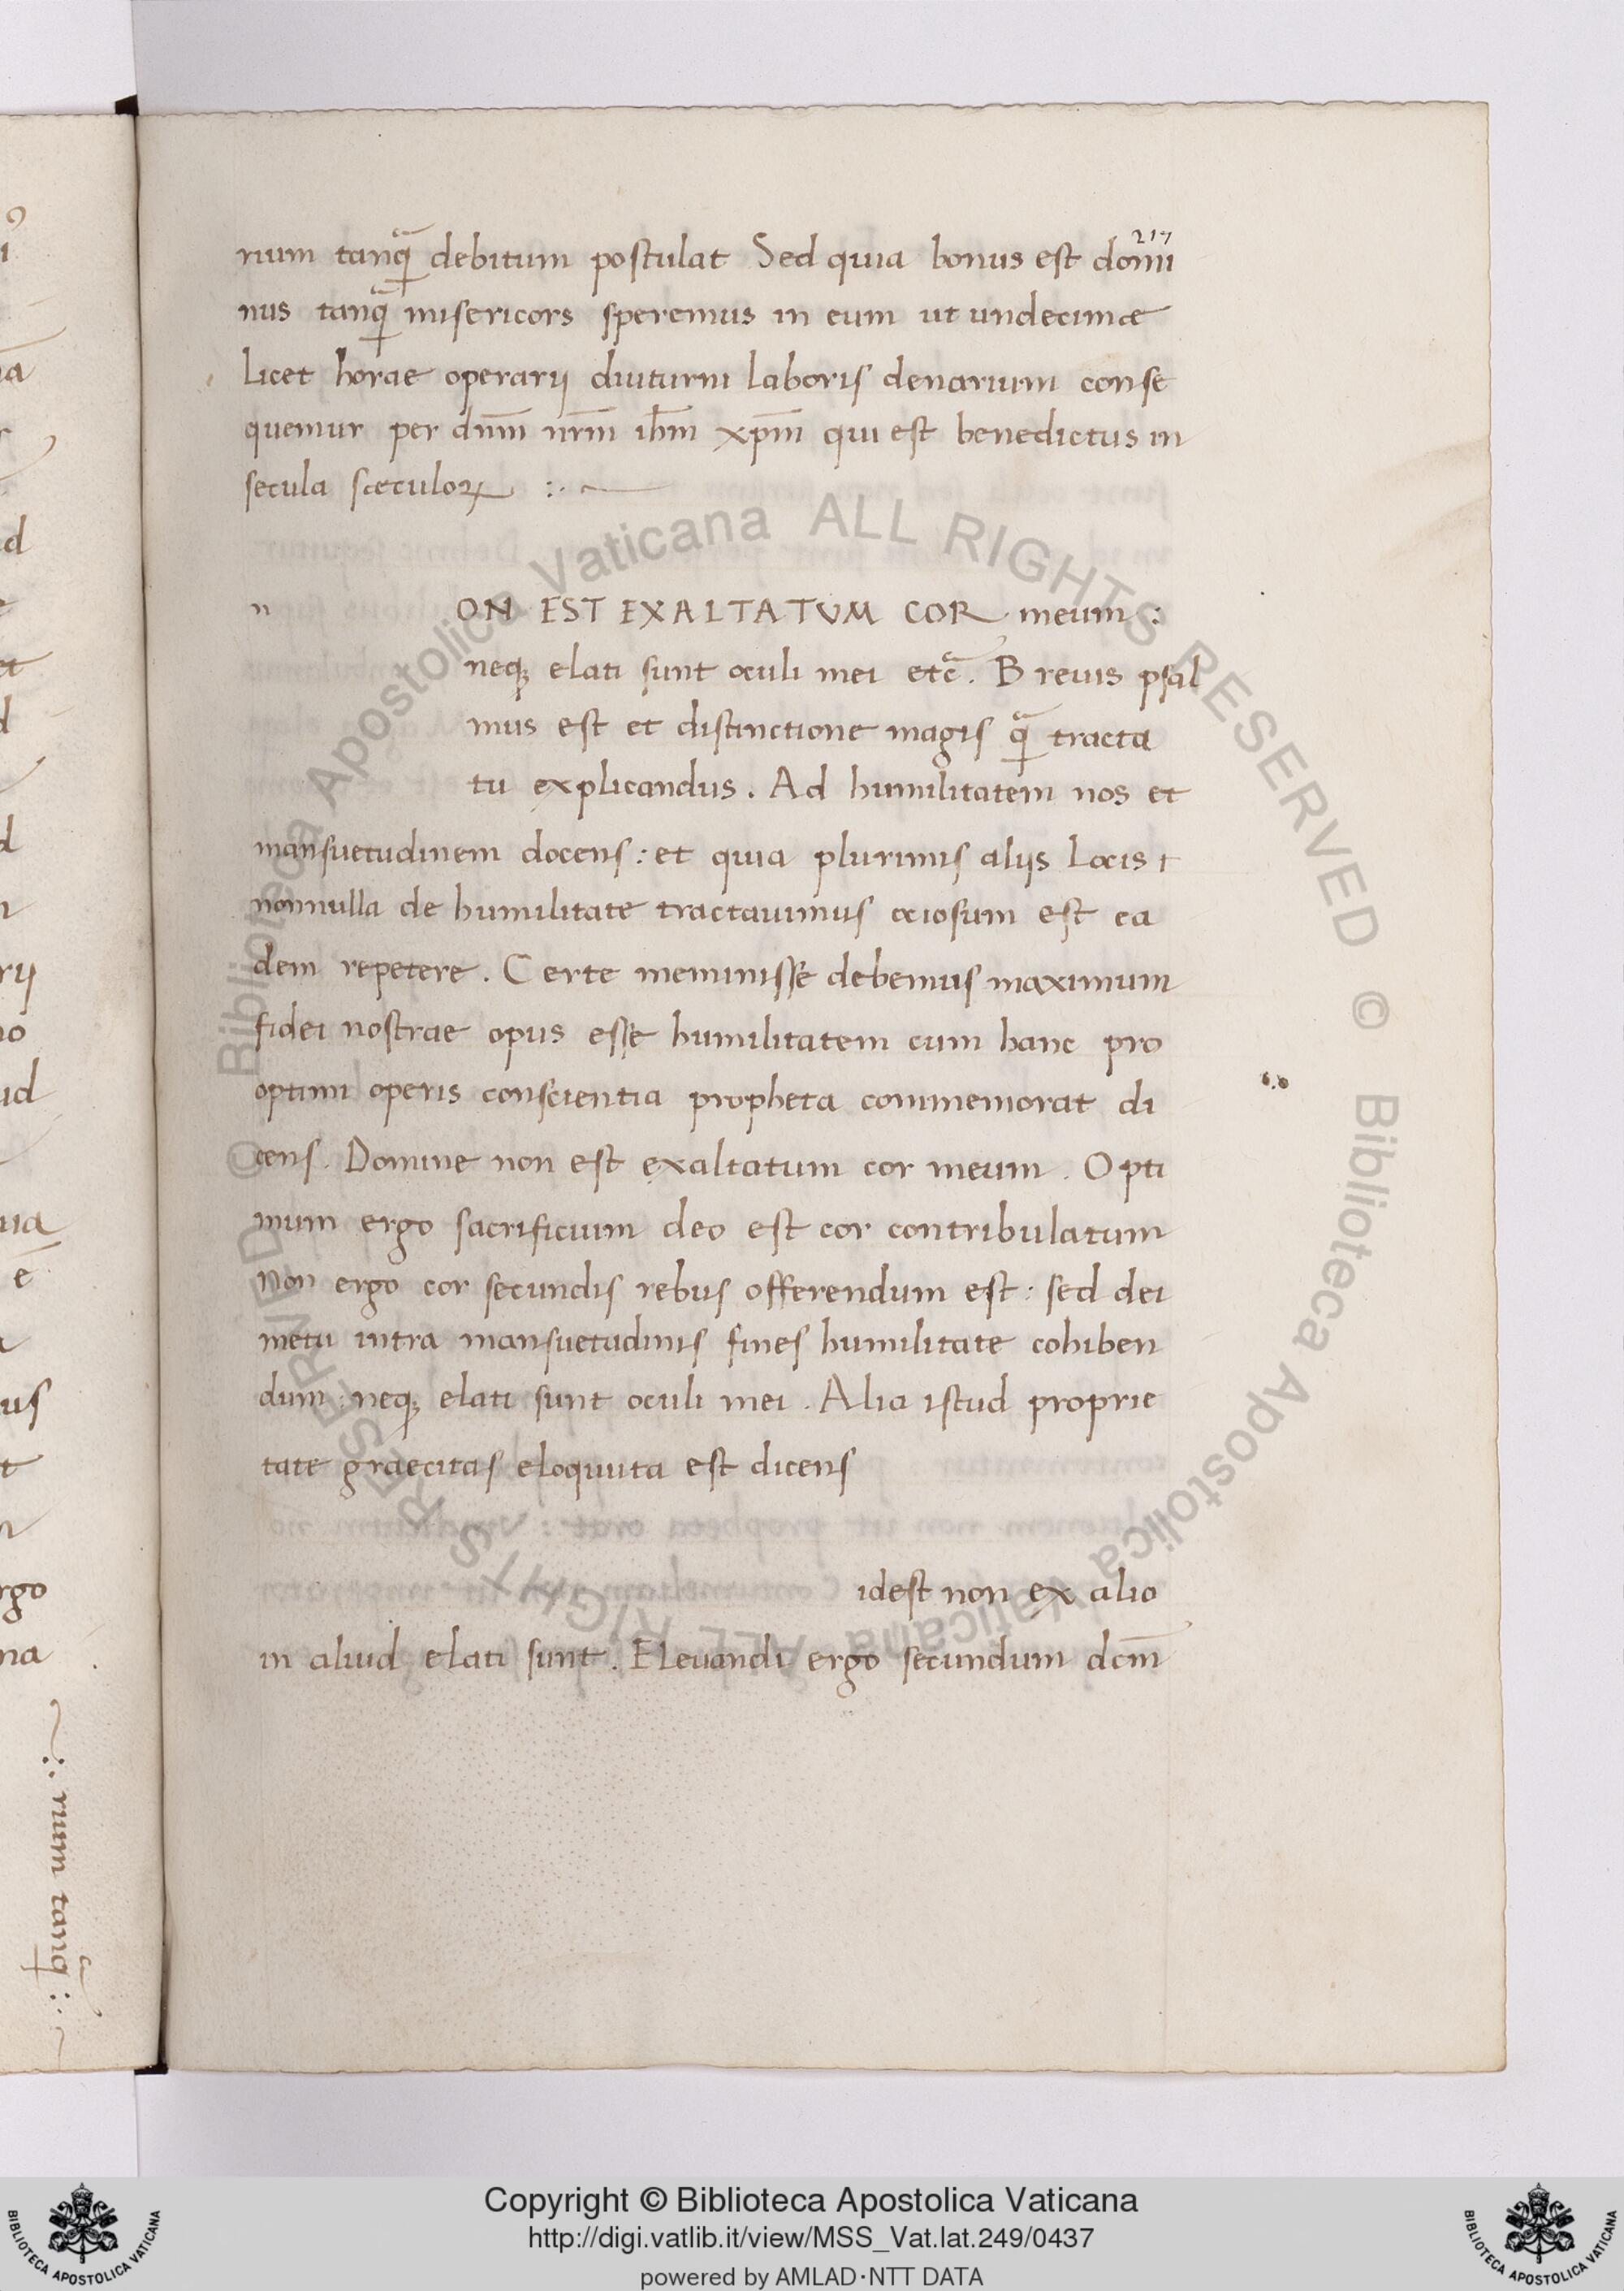 217
num tanq̃ debitum postulat Sed quia bonus est domi
nus tanq̃ misericors speremus in eum ut undecimæ
licet horae operarij diuturni laboris denarium conse
quemur per dnm̄ nrm̄ ihm̄ xpm̄ qui est benedictus in
secula sæculoꝝ :.
n ON EST EXALTATVM COR meum :
neqꝫ elati sunt oculi mei etc̃. Breuis psal
mus est et distinctione magis q̃ tracta
tu explicandus. Ad humilitatem nos et
mansuetudinem docens: et quia plurimis alijs locis
nonnulla de humilitate tractauimus ociosum est ea
dem repetere. Certe meminisse debemus maximum
fidei nostrae opus esse humilitatem cum hanc pro
optimi operis conscientia propheta commemorat di
cens. Domine non est exaltatum cor meum. Opti
mum ergo sacrificium deo est cor contribulatum
non ergo cor secundis rebus offerendum est: sed dei
metu intra mansuetudinis fines humilitate cohiben
dum: neqꝫ elati sunt oculi mei. Alia istud proprie
tate graecitas eloquuta est dicens
idest non ex alio
in aliud elati sunt. Eleuandi ergo secundum dcm̄
:. rum tanq̃ :.
© Biblioteca Apostolica Vaticana ALL RIGHTS RESERVED © Biblioteca Apostolica Vaticana ALL RIGHTS RESERVED
Copyright © Biblioteca Apostolica Vaticana
http://digi.vatlib.it/view/MSS_Vat.lat.249/0437
powered by AMLAD·NTT DATA
BIBLIOTECA APOSTOLICA VATICANA
BIBLIOTECA APOSTOLICA VATICANA